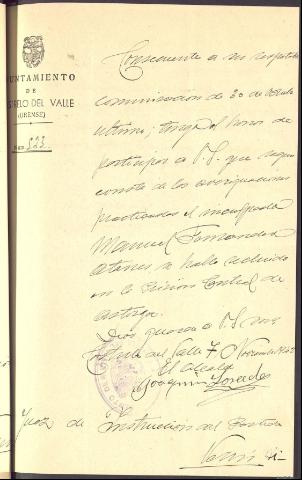 AYUNTAMIENTO
DE
CASTRELO DEL VALLE
(ORENSE)
NUM. 823
Consecuente a su respetable
comunicacion de 30 de Octubre
ultimo; tengo el honor de
participar a V.S. que segun
consta de las averiguaciones
practicadas el inculpado
Manuel Fernandez
Atanes se halla recluido
en la Prision Central de
Astorga.
Dios guarde a V.S. ms
Castrelo del Valle 7 Noviembre
El Alcalde
Joaquin Paredes
Juez de Instruccion del Partido
Verin